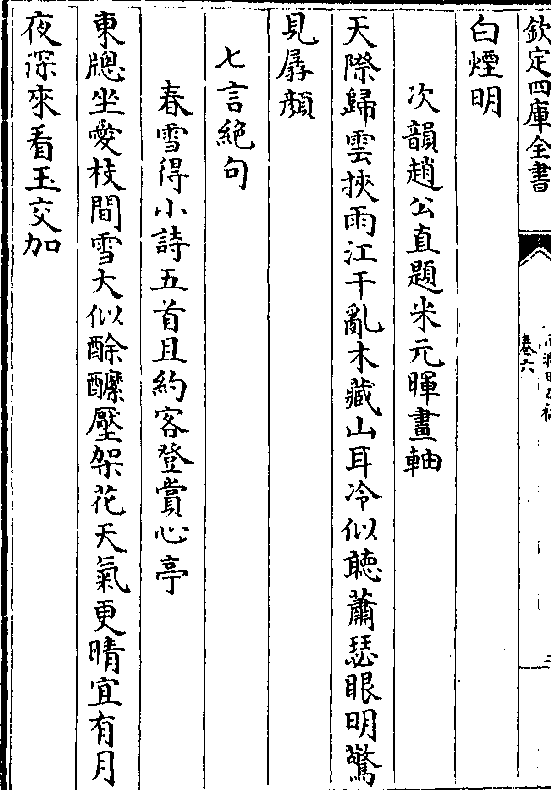 欽定四庫全書
卷六
白煙明
次韻趙公直題米元暉畫軸
天際歸雲挾雨江干亂木藏山耳冷似聽蕭瑟眼明驚
見孱顔
七言絶句
春雪得小詩五首且約客登賞心亭
東牕坐愛枝間雪大似酴醿壓架花天氣更晴宜有月
夜深來看玉交加